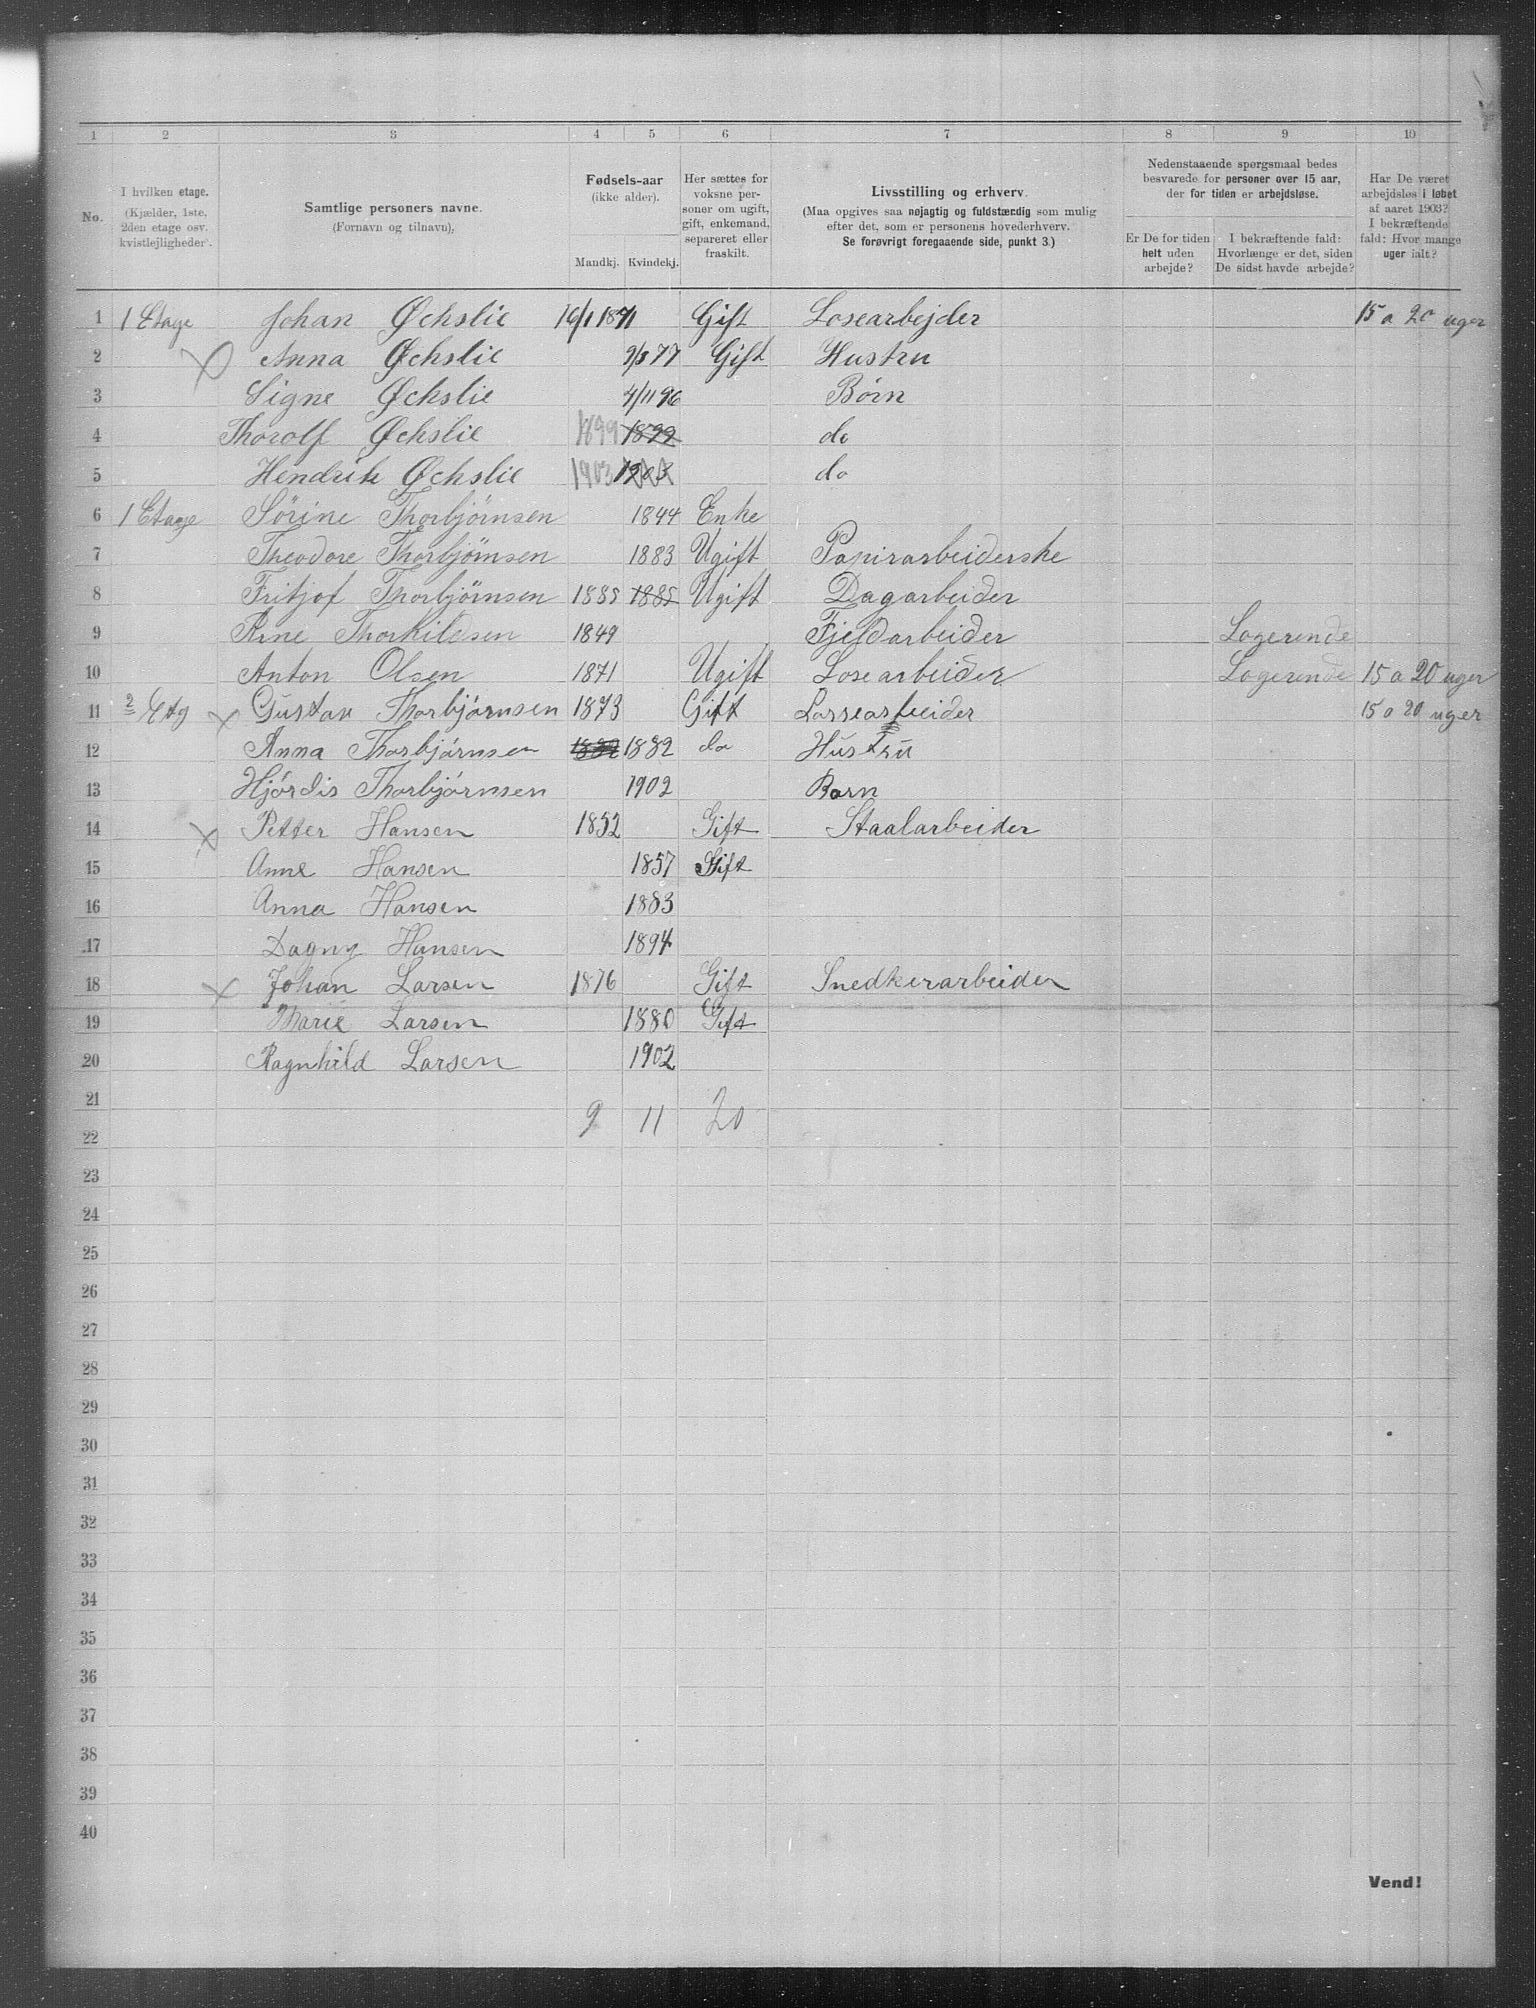 1 2 3 4 5 6 7 8 9 10
No.
I hvilken etage.
(Kjælder, 1ste, 2den etage osv. kvistlejligheder).
Samtlige personers navne.
(Fornavn og tilnavn).
Fødsels-aar
(ikke alder).
Mandkj. Kvindekj.
Her sættes for voksne personer om ugift, gift, enkemand, separeret eller fraskilt.
Livsstilling og erhverv.
(Maa opgives saa nøjagtig og fuldstændig som mulig efter det, som er personens hovederhverv.
Se forøvrigt foregaaende side, punkt 3.)
Nedenstaaende spørgsmaal bedes besvarede for personer over 15 aar, der for tiden er arbejdsløse.
Er De for tiden helt uden arbejde?
I bekræftende fald: Hvorlænge er det, siden De sidst havde arbejde?
Har De været arbejdsløs i løbet af aaret 1903? I bekræftende fald: Hvor mange uger ialt?
1 1 Etage Johan Øchslie 16/1 1871 Gift Losearbejder 15 a 20 uger
2 Anna Øchslie 9/8 77 Gift Hustru
3 Signe Øchslie 4/11 96 Børn
4 Thorolf Øchslie 1899 1899 do
5 Hendrik Øchslie 1903 1903 do
6 1 Etage Sörine Thorbjörnsen 1844 Enke
7 Theodore Thorbjörnsen 1883 Ugift Papirarbeiderske
8 Fritjof Thorbjörnsen 1885 1885 Ugift Dagarbeider
9 Arne Thorkildsen 1849 Fjeldarbeider Logerende
10 Anton Olsen 1871 Ugift Losearbeider Logerende 15 a 20 uger
11 2 Etg Gustav Thorbjørnsen 1873 Gift Lossearbeider 15 a 20 uger
12 Anna Thorbjørnsen 1882 1882 do Hustru
13 Hjørdis Thorbjørnsen 1902 Barn
14 Petter Hansen 1852 Gift Staalarbeider
15 Anne Hansen 1857 Gift
16 Anna Hansen 1883
17 Dagny Hansen 1894
18 Johan Larsen 1876 Gift Snedkerarbeider
19 Marie Larsen 1880 Gift
20 Ragnhild Larsen 1902
21
9 11 20
22
23
24
25
26
27
28
29
30
31
32
33
34
35
36
37
38
39
40
Vend!